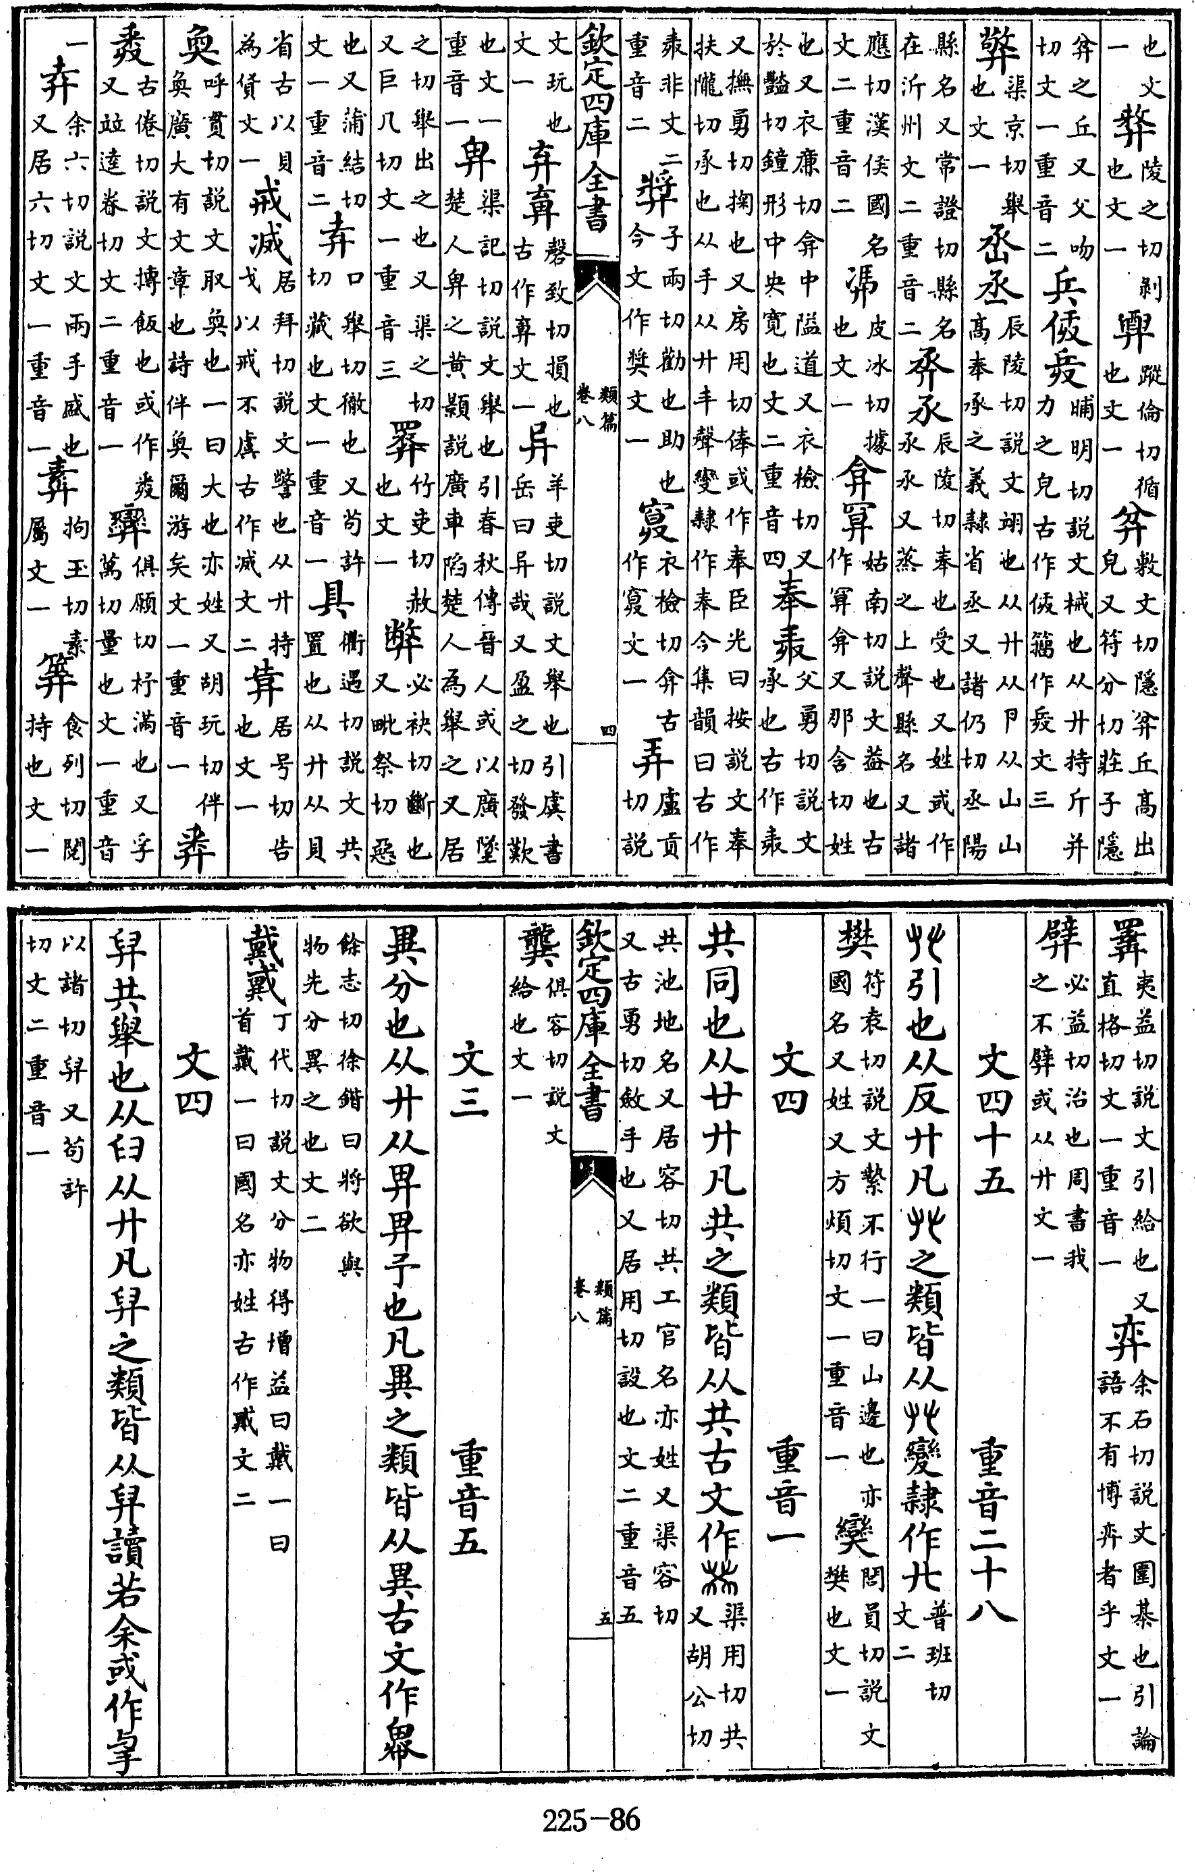 也文一 陵之切剝也文一 蹤倫切循也文一 弅敷文切隱弅丘高出皃又符分切莊子隱
弅之丘又父吻切文一重音二 兵晡明切說文械也从廾持斤并力之皃古作𠈮籀作文三
渠京切舉也文一 丞辰陵切說文翊也从廾从卩从山山高奉承之義隸省丞又諸仍切丞陽
縣名又常證切縣名在沂州文二重音二 承辰陵切奉也受也又姓或作氶承又蒸之上聲縣名又諸
應切漢侯國名文二重音二 皮冰切據也文一 弇𢍉姑南切說文蓋也古作𢍉弇又那含切姓
也又衣廉切弇中隘道又衣檢切又於豔切鐘形中央寬也文二重音四 奉父勇切說文承也古作
又撫勇切掬也又房用切俸或作奉臣光曰按說文奉扶隴切承也从手从廾丰聲變隸作奉今集韻曰古作
非文二重音二 𢍰子兩切勸也助也今文作奬文一 㝮衣檢切弇古作㝮文一 弄盧貢切說
欽定四庫全書 類篇 卷八 四
文玩也文一 磬致切損也古作文一 异羊吏切說文舉也引虞書岳曰异哉又盈之切發歎
也文一重音一 𢍁渠記切說文舉也引春秋傳晉人或以廣墜楚人𢍁之黄顥說廣車陷楚人為舉之又居
之切舉出之也又渠之切又巨几切文一重音三 竹吏切赦也文一 弊必袂切斷也又毗祭切惡
也又蒲結切文一重音二 弆口舉切徹也又苟許切藏也文一重音一 具衢遇切說文共置也从廾从貝
省古以貝為貨文一 戒居拜切說文警也从廾持戈以戒不虞古作文二 居号切告也文一
奐呼貫切說文取奐也一曰大也亦姓又胡玩切伴奐廣大有文章也詩伴奐爾游矣文一重音一
古倦切說文摶飯也或作又竝逵眷切文二重音一 俱願切杼滿也又孚萬切量也文一重音一
余六切說文兩手盛也又居六切文一重音一 拘玉切素屬文一 食列切閱持也文一
夷益切說文引給也又直格切文一重音一 弈余石切說文圍棊也引論語不有博弈者乎文一
必益切治也周書我之不或从廾文一
文四十五 重音二十八
𠬜引也从反廾凡𠬜之類皆从𠬜變隸作普班切文二
樊符袁切說文騺不行一曰山邊也亦國名又姓又方煩切文一重音一 㢕閭員切說文樊也文一
文四 重音一
共同也从廿廾凡共之類皆从共古文作渠用切共又胡公切
共池地名又居容切共工官名亦姓又渠容切又古勇切斂手也又居用切設也文二重音五
欽定四庫全書 類篇 卷八 五
龔俱容切說文給也文一
文三 重音五
異分也从廾从畀畀予也凡異之類皆从異古文作
餘志切徐鍇曰將欲與物先分異之也文二
戴丁代切說文分物得增益曰戴一曰首戴一曰國名亦姓古作文二
文四
舁共舉也从臼从廾凡舁之類皆从舁讀若余或作
以諸切舁又苟許切文二重音一
225-86